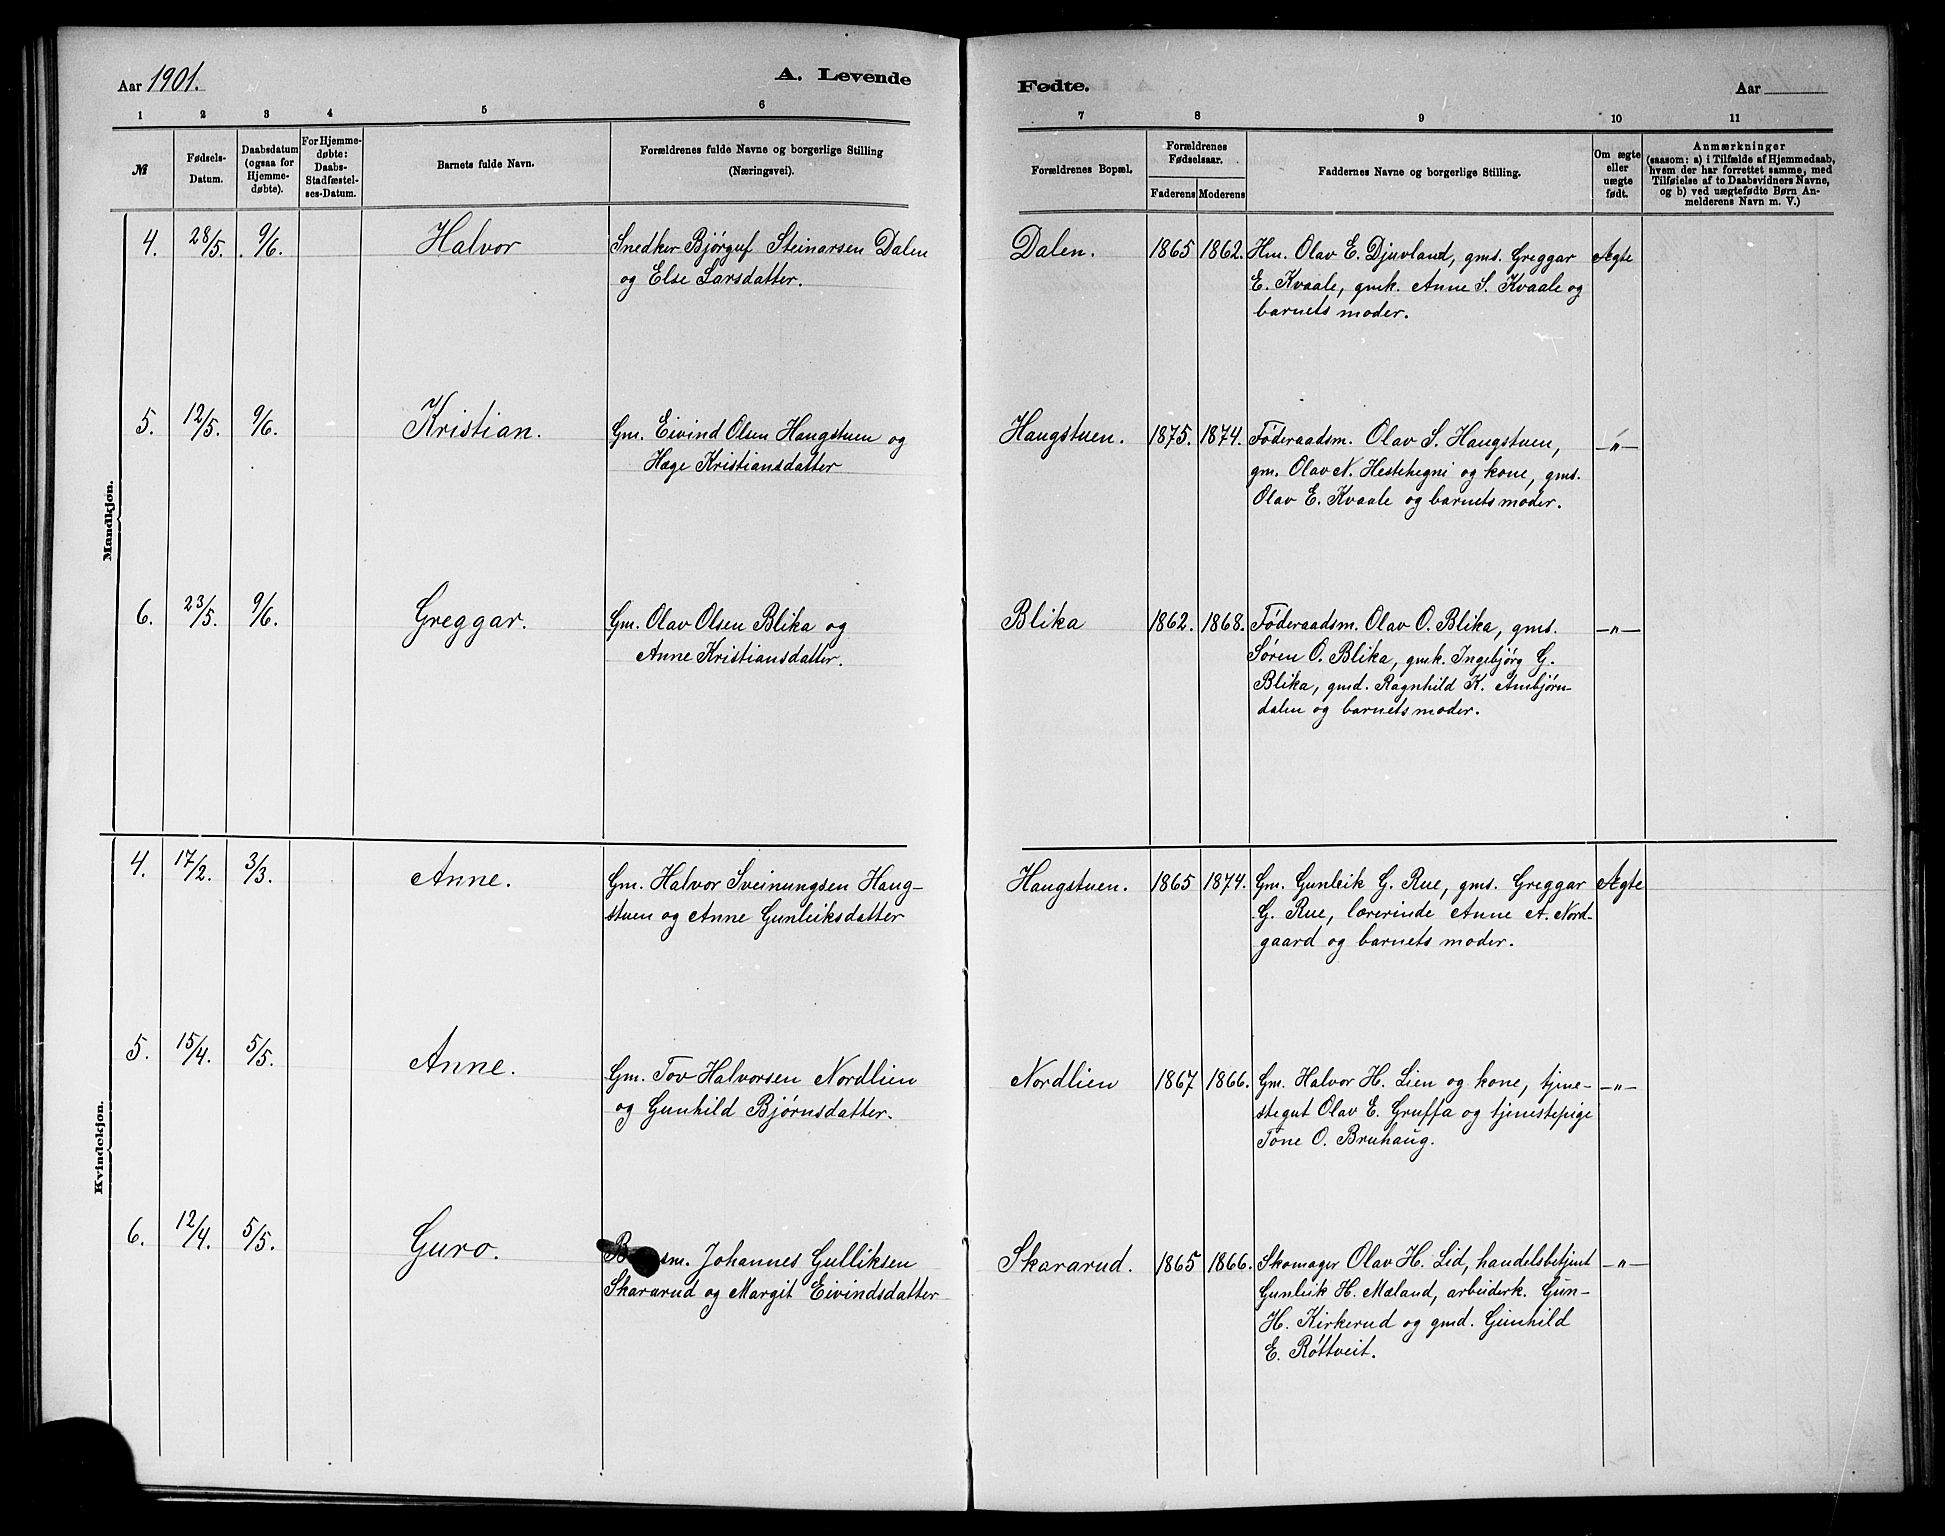 Aar 1901.
A. Levende
Fødte.
Aar
1 2 3 4 5 6 7 8 9 10 11
№
Fødsels-
Datum.
Daabsdatum
(ogsaa for
Hjemme-
døbte).
For Hjemme-
døbte:
Daabs-
Stadfæstel-
ses-Datum.
Barnets fulde Navn.
Forældrenes fulde Navne og borgerlige Stilling
(Næringsvei).
Forældrenes Bopæl.
Forældrenes
Fødselsaar.
Faderens Moderens
Faddernes Navne og borgerlige Stilling.
Om ægte
eller
uægte
født.
Anmærkninger
(saasom: a) i Tilfælde af Hjemmedaab,
hvem der har forrettet samme, med
Tilføielse af to Daabsvidners Navne,
og b) ved uægtefødte Børn An-
melderens Navn m. V.)
Mandkjøn.
4. 28/5. 9/6. Halvor
Snedker Bjørguf Steinarsen Dalen
og Else Larsdatter.
Dalen. 1865 1862.
Hm. Olav E. Djuvland, gms. Greggar
E. Kvaale, gmk. Anne S. Kvaale og
barnets moder.
Ægte
5. 12/5. 9/6. Kristian.
Gm. Eivind Olsen Haugstuen og
Hæge Kristiansdatter
Haugstuen. 1875. 1874.
Føderaadsm. Olav S. Haugstuen,
gm. Olav N. Hestehegni og kone, gms.
Olav E. Kvaale og barnets moder.
—"—
6. 23/5. 9/6. Greggar.
Gm. Olav Olsen Blika og
Anne Kristiansdatter.
Blika 1862. 1868.
Føderaadsm. Olav O. Blika, gms.
Søren O. Blika, gmk. Ingebjørg G.
Blika, gmd. Ragnhild K. Ambjørn-
dalen og barnets moder.
—"—
Kvindekjøn.
4. 17/2. 3/3. Anne.
Gm. Halvor Sveinungsen Haug-
stuen og Anne Gunleiksdatter
Haugstuen. 1865 1874.
Gm. Gunleik G. Rue, gms. Greggar
G. Rue, lærerinde Anne A. Nord-
gaard og barnets moder.
Ægte
5. 15/4. 5/5. Anne.
Gm. Tov Halvorsen Nordlien
og Gunhild Bjørnsdatter.
Nordlien 1867 1866.
Gm. Halvor H. Lien og kone, tjene-
stegut Olav E. Gruffa og tjenestepige
Tone O. Bruhaug.
—"—
6. 12/4. 5/5. Guro.
Johannes Gulliksen
Skararud og Margit Eivindsdatter
Skararud. 1865 1866.
Skomager Olav H. Lid, handelsbetjent
Gunleik H. Mæland, arbeiderk. Gun-
H. Kirkerud og gmd. Gunhild
E. Røttveit.
—"—